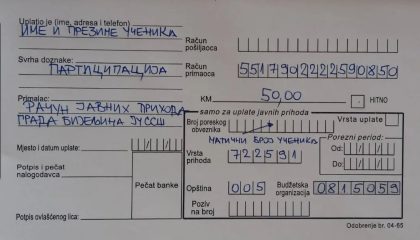 Uplatio je (ime, adresa i telefon)
ИМЕ И ПРЕЗИМЕ УЧЕНИКА
Račun pošiljaoca
Svrha doznake:
ПАРТИЦИПАЦИЈА
Račun primaoca 5517902222590850
Primalac:
РАЧУН ЈАВНИХ ПРИХОДА
ГРАДА БИЈЕЉИНА ЈУССШ
KM 50,00 HITNO
samo za uplate javnih prihoda
Broj poreskog obveznika
Vrsta uplate
МАТИЧНИ БРОЈ УЧЕНИКА
Mjesto i datum uplate:
Vrsta prihoda 722591
Porezni period:
Od:
Do:
Potpis i pečat nalogodavca
Pečat banke
Opština 005
Budžetska organizacija 0815059
Potpis ovlašćenog lica:
Poziv na broj
Odobrenje br. 04-65